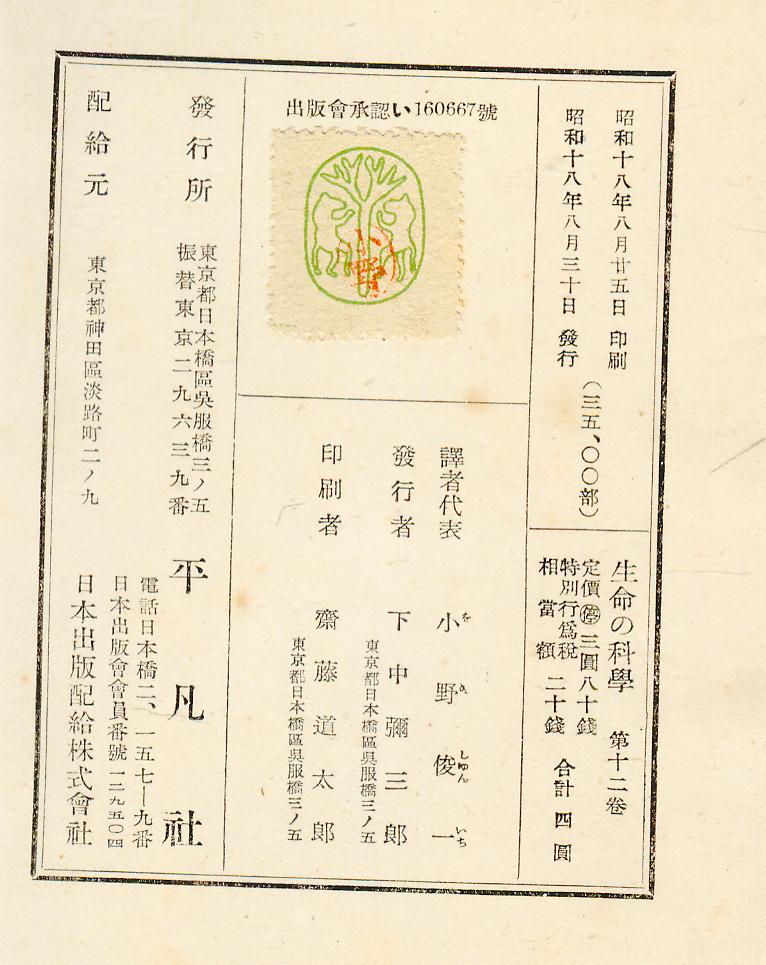 昭和十八年八月廿五日 印刷
昭和十八年八月三十日 發行
（三五、〇〇部）
生命の科學 第十二卷
定價 停 三圓八十錢
特別行爲税
相當額 二十錢
合計 四圓
出版會承認い160667號
小野
譯者代表 小野俊一
を の しゆん いち
發行者 下中彌三郎
東京都日本橋區吳服橋三ノ五
印刷者 齋藤道太郎
東京都日本橋區吳服橋三ノ五
發行所
東京都日本橋區吳服橋三ノ五
振替東京二九六三九番
平凡社
電話日本橋二、一五七—九番
日本出版會會員番號一二九五〇四
配給元
東京都神田區淡路町二ノ九
日本出版配給株式會社